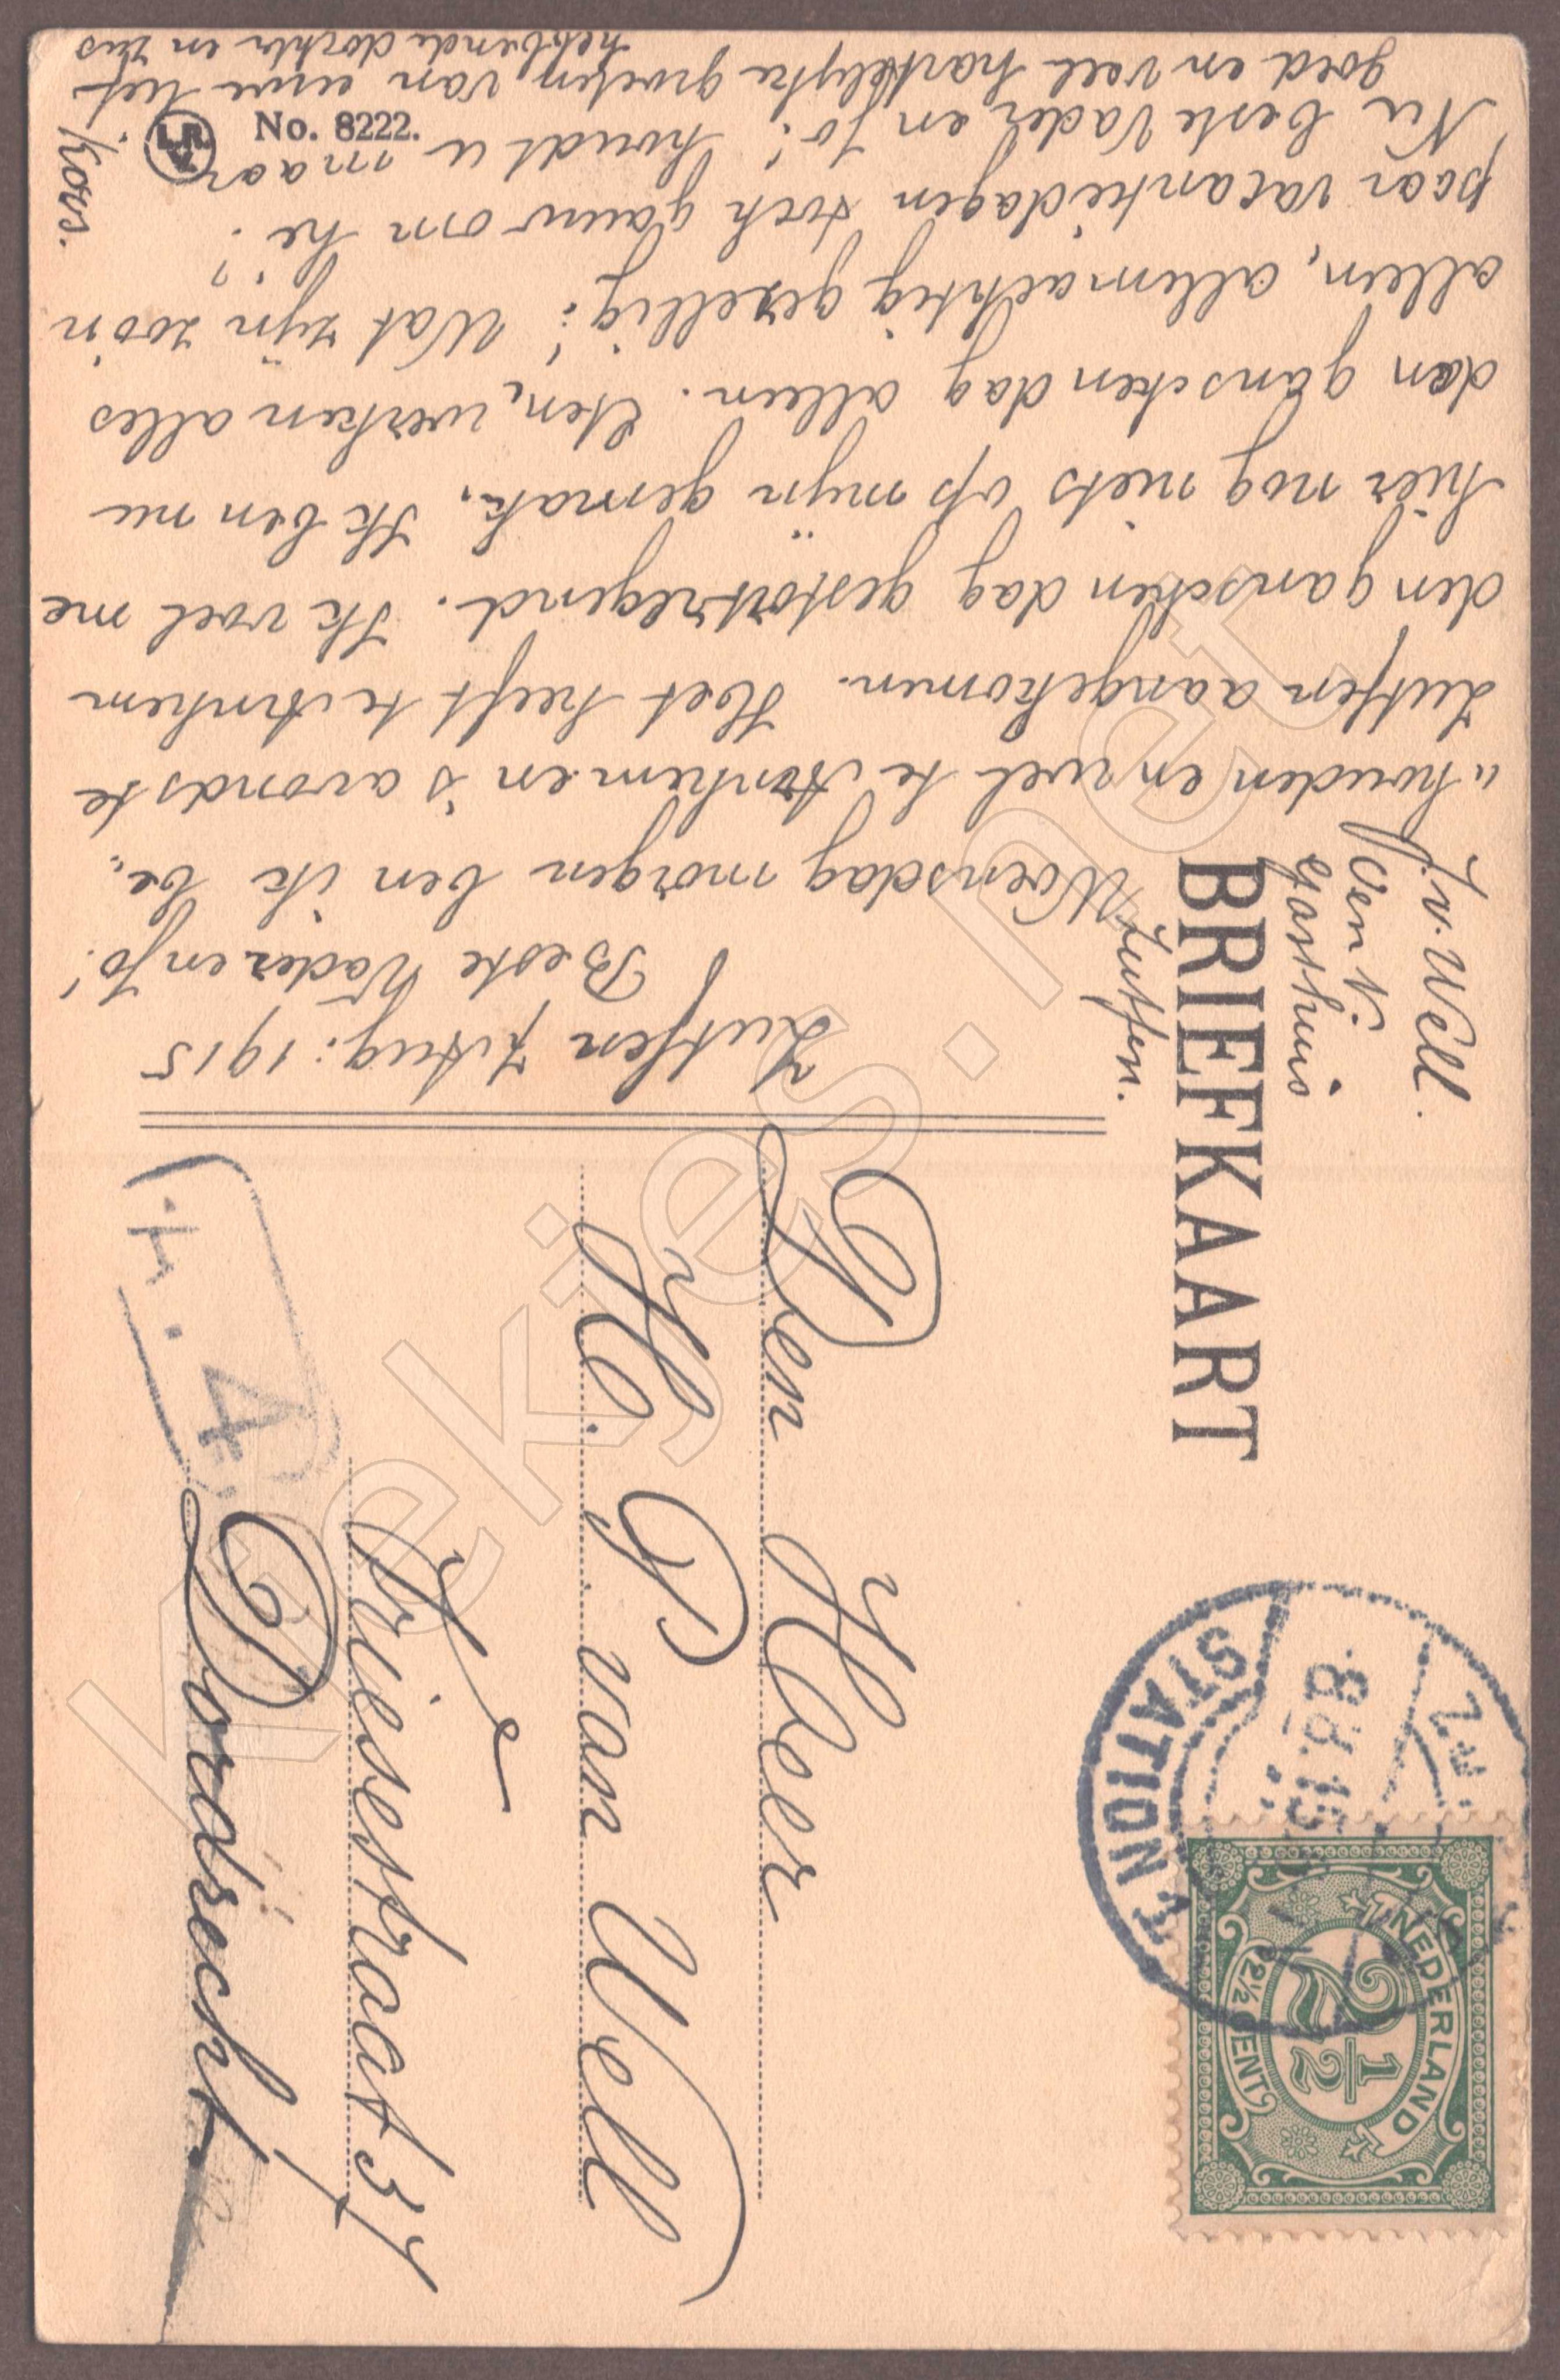 Zutfen 7 Aug: 1915
Beste Vader en Jo!
Woensdag morgen ben ik be„
„houden en wel te Arnhem en 's avonds te
Zutfen aangekomen. Het heeft te Arnhem
den ganschen dag gestortregend. Ik voel me
hier nog niets op mijn gemak. Ik ben nu
den ganschen dag alleen. Eten, werken alles
alleen, allemachtig gezellig! Wat zijn zoo'n
paar vacantiedagen toch gauw om hè?
Nu beste Vader en Jo! houdt u maar
goed en veel hartelijke groeten van uwe lief
hebbende dochter en zus
Koos.
J. v. Well.
Gasthuis
Zutfen.
BRIEFKAART
Den Heer
H. P. van Well
Vriesestraat 31
Dordrecht
4
STATION
8.8.15
NEDERLAND
2½
2½ CENT
L.R.
No. 8222.
Kiekies.net